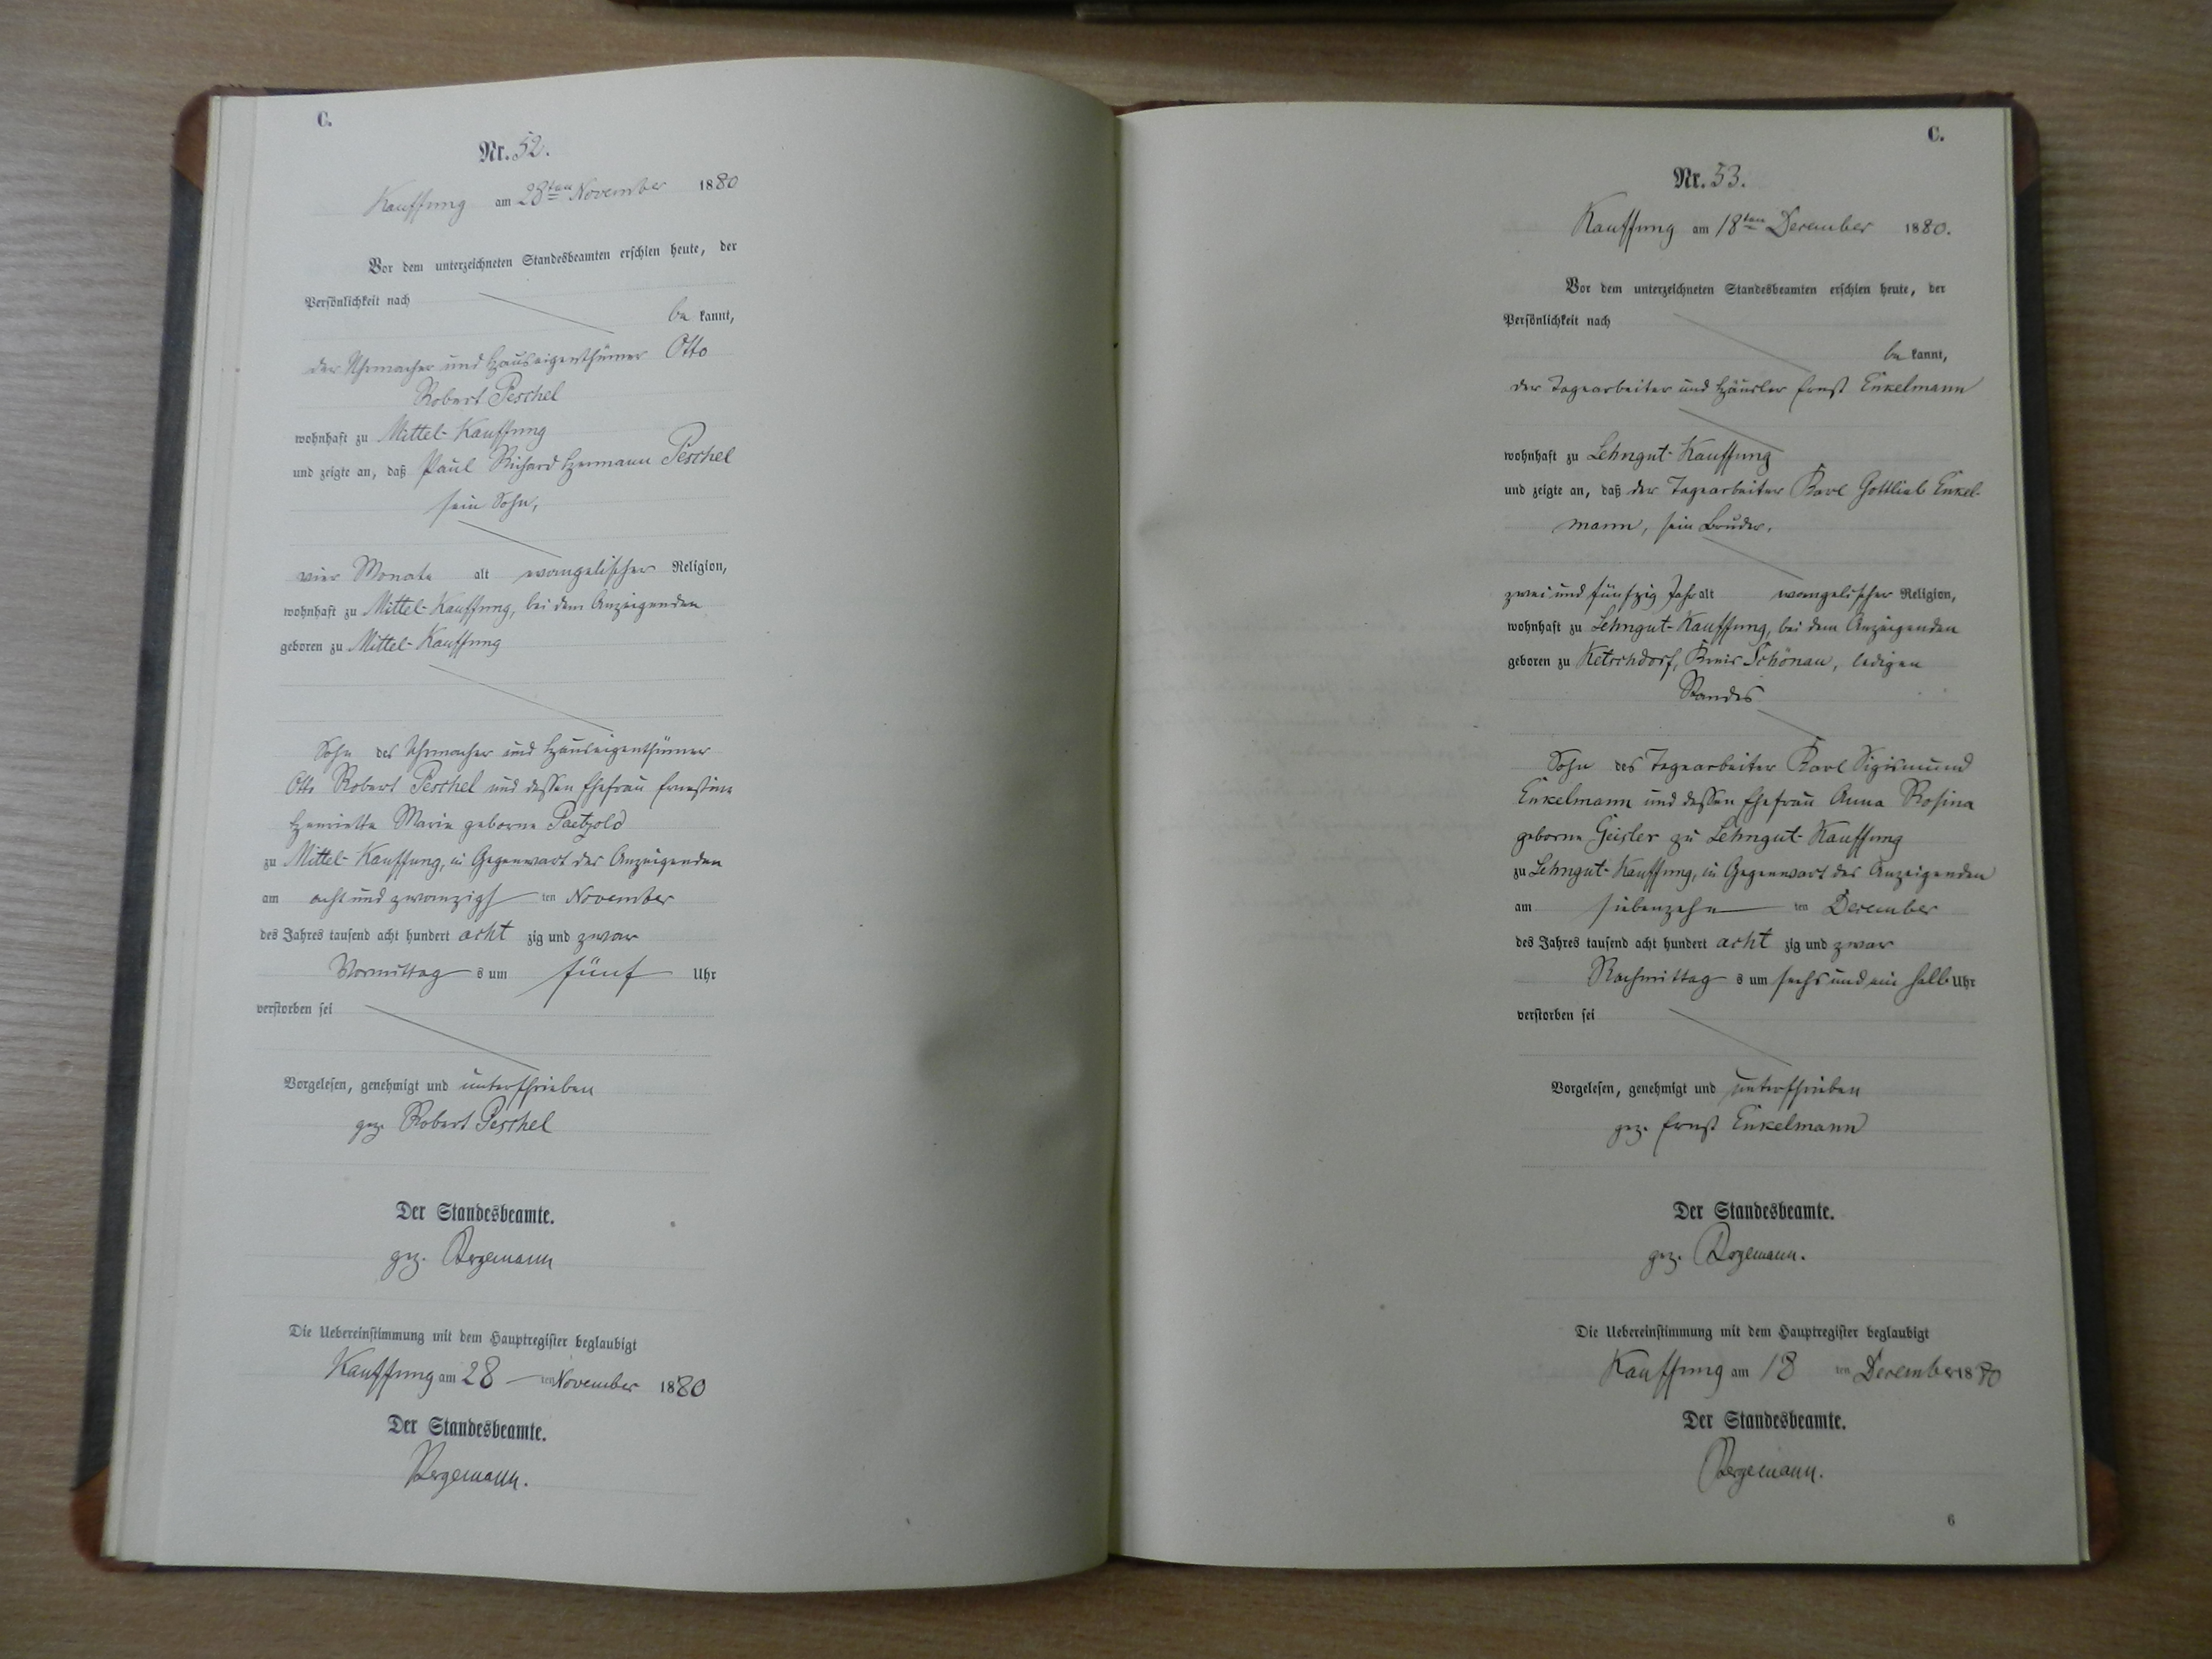 C.
Nr. 52.
Kauffung am 28ten November 1880
Vor dem unterzeichneten Standesbeamten erschien heute, der
Persönlichkeit nach
be kannt,
der Uhrmacher und Hauseigenthümer Otto
Robert Peschel
wohnhaft zu Mittel-Kauffung
und zeigte an, daß Paul Richard Hermann Peschel
sein Sohn,
vier Monate alt evangelischer Religion,
wohnhaft zu Mittel-Kauffung, bei dem Anzeigenden
geboren zu Mittel-Kauffung
Sohn des Uhrmacher und Hauseigenthümer
Otto Robert Peschel und dessen Ehefrau Ernestine
Henriette Marie geborne Paetzold
zu Mittel-Kauffung, in Gegenwart des Anzeigenden
am acht und zwanzigsten November
des Jahres tausend acht hundert acht zig und zwar
Vormittag s um fünf Uhr
verstorben sei
Vorgelesen, genehmigt und unterschrieben
gez. Robert Peschel
Der Standesbeamte.
gez. Bergemann
Die Uebereinstimmung mit dem Hauptregister beglaubigt
Kauffung am 28 ten November 1880
Der Standesbeamte.
Bergemann.
C.
Nr. 53.
Kauffung am 18ten December 1880.
Vor dem unterzeichneten Standesbeamten erschien heute, der
Persönlichkeit nach
be kannt,
der Tagearbeiter und Häusler Ernst Enkelmann
wohnhaft zu Lehngut-Kauffung
und zeigte an, daß der Tagearbeiter Karl Gottlieb Enkel-
mann, sein Bruder,
zwei und fünfzig Jahr alt evangelischer Religion,
wohnhaft zu Lehngut-Kauffung, bei dem Anzeigenden
geboren zu Ketschdorf, Kreis Schönau, ledigen
Standes
Sohn des Tagearbeiter Karl Sigismund
Enkelmann und dessen Ehefrau Anna Rosina
geborne Geisler zu Lehngut-Kauffung
zu Lehngut-Kauffung, in Gegenwart des Anzeigenden
am siebenzehn ten December
des Jahres tausend acht hundert acht zig und zwar
Nachmittag s um sechs und ein halb Uhr
verstorben sei
Vorgelesen, genehmigt und unterschrieben
gez. Ernst Enkelmann
Der Standesbeamte.
gez. Bergemann.
Die Uebereinstimmung mit dem Hauptregister beglaubigt
Kauffung am 18 ten December 1880
Der Standesbeamte.
Bergemann.
6